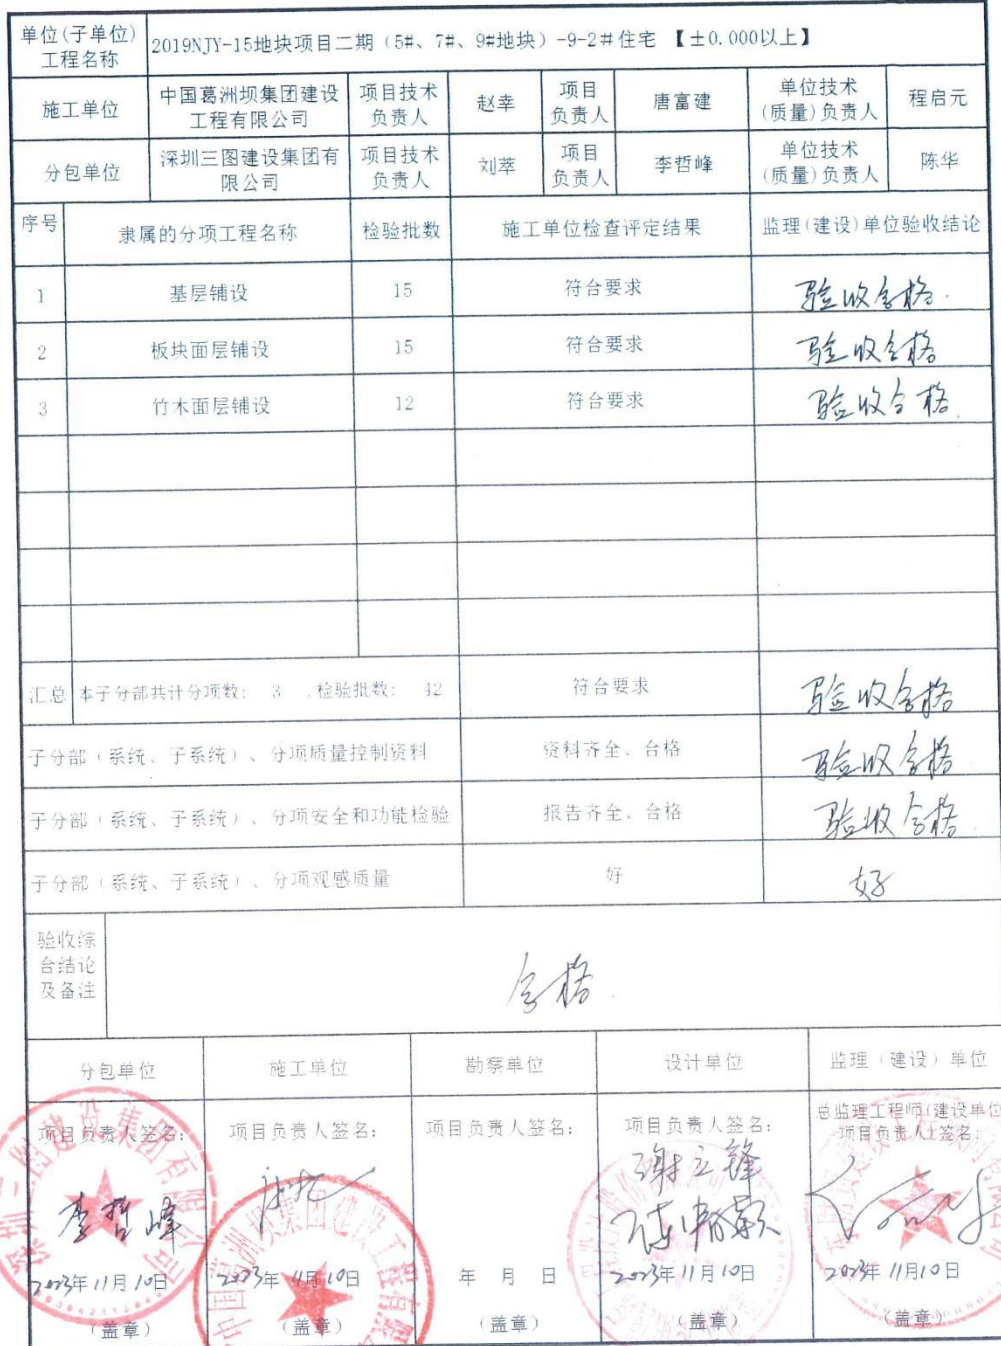 单位(子单位)
工程名称
2019NJY-15地块项目二期（5#、7#、9#地块）-9-2#住宅 【±0.000以上】
施工单位
中国葛洲坝集团建设
工程有限公司
项目技术
负责人
赵幸
项目
负责人
唐富建
单位技术
(质量)负责人
程启元
分包单位
深圳三图建设集团有
限公司
项目技术
负责人
刘萃
项目
负责人
李哲峰
单位技术
(质量)负责人
陈华
序号
隶属的分项工程名称
检验批数
施工单位检查评定结果
监理(建设)单位验收结论
1
基层铺设
15
符合要求
验收合格.
2
板块面层铺设
15
符合要求
验收合格
3
竹木面层铺设
12
符合要求
验收合格.
汇总
本子分部共计分项数: 3 .检验批数: 42
符合要求
验收合格
子分部（系统、子系统）、分项质量控制资料
资料齐全、合格
验收合格
子分部（系统、子系统）、分项安全和功能检验
报告齐全、合格
验收合格.
子分部（系统、子系统）、分项观感质量
好
好
验收综
合结论
及备注
合格.
分包单位
施工单位
勘察单位
设计单位
监理（建设）单位
项目负责人签名:
李哲峰
2023年11月10日
(盖章)
项目负责人签名:
2023年11月10日
(盖章)
项目负责人签名:
年 月 日
(盖章)
项目负责人签名:
谢立锋
2023年11月10日
(盖章)
总监理工程师(建设单位
项目负责人)签名:
2023年11月10日
(盖章)